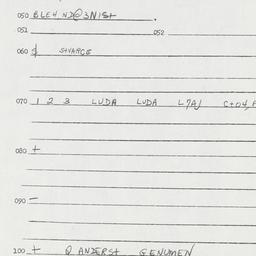 050 BLEH ND@3NIST.
051 052
060 $ SHVARCE
070 1 2 3 LUDA LUDA L7AJ
080 +
090 -
100 + Q ANDERS+ GENUMEN